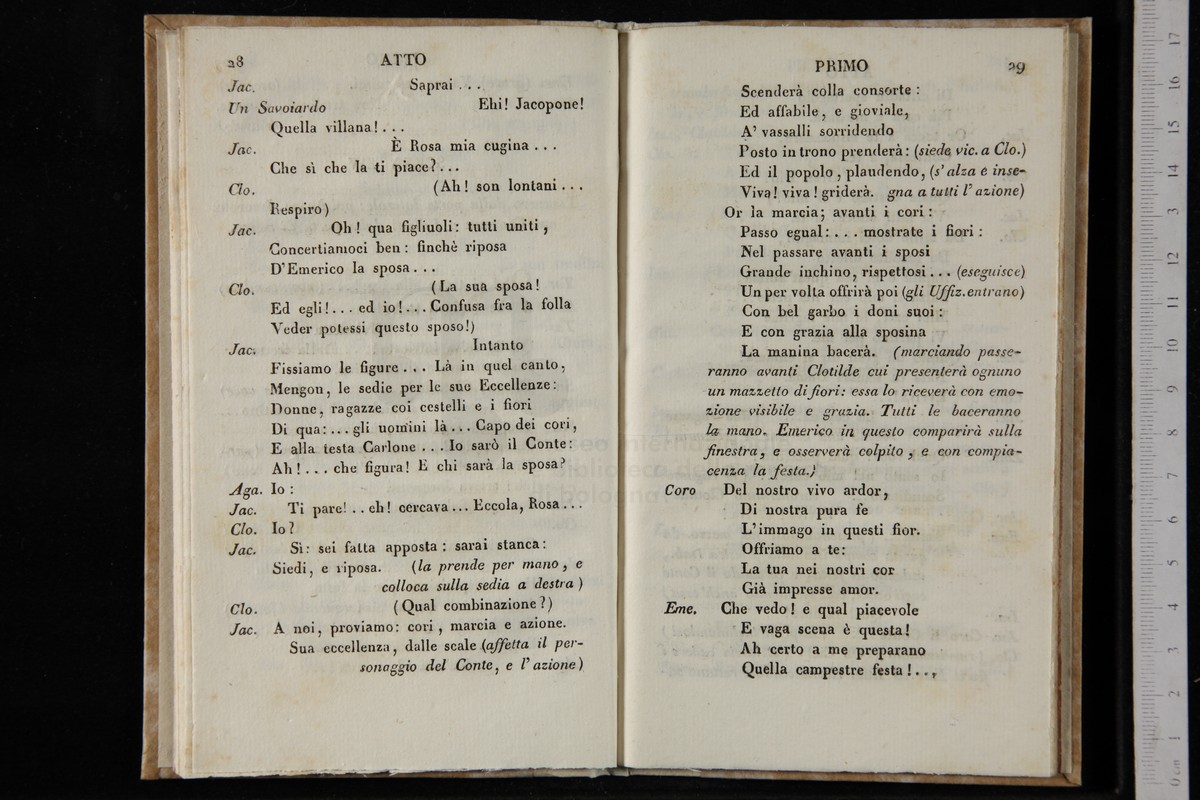 28 ATTO
Jac. Saprai . . .
Un Savoiardo Ehi! Jacopone!
Quella villana! . . .
Jac. È Rosa mia cugina . . .
Che sì che la ti piace? . . .
Clo. (Ah! son lontani . . .
Respiro)
Jac. Oh! qua figliuoli: tutti uniti,
Concertiamoci ben: finchè riposa
D'Emerico la sposa . . .
Clo. (La sua sposa!
Ed egli! . . . ed io! . . . Confusa fra la folla
Veder potessi questo sposo!)
Jac. Intanto
Fissiamo le figure . . . Là in quel canto,
Mengon, le sedie per le sue Eccellenze:
Donne, ragazze coi cestelli e i fiori
Di qua: . . . gli uomini là . . . Capo dei cori,
E alla testa Carlone . . . Io sarò il Conte:
Ah! . . . che figura! E chi sarà la sposa?
Aga. Io:
Jac. Ti pare! . . eh! cercava . . . Eccola, Rosa . . .
Clo. Io?
Jac. Sì: sei fatta apposta: sarai stanca:
Siedi, e riposa. (la prende per mano, e
colloca sulla sedia a destra)
Clo. (Qual combinazione?)
Jac. A noi, proviamo: cori, marcia e azione.
Sua eccellenza, dalle scale (affetta il per-
sonaggio del Conte, e l'azione)
PRIMO 29
Scenderà colla consorte:
Ed affabile, e gioviale,
A' vassalli sorridendo
Posto in trono prenderà: (siede vic. a Clo.)
Ed il popolo, plaudendo, (s'alza e inse-
Viva! viva! griderà. gna a tutti l'azione)
Or la marcia; avanti i cori:
Passo egual: . . . mostrate i fiori:
Nel passare avanti i sposi
Grande inchino, rispettosi . . . (eseguisce)
Un per volta offrirà poi (gli Uffiz. entrano)
Con bel garbo i doni suoi:
E con grazia alla sposina
La manina bacerà. (marciando passe-
ranno avanti Clotilde cui presenterà ognuno
un mazzetto di fiori: essa lo riceverà con emo-
zione visibile e grazia. Tutti le baceranno
la mano. Emerico in questo comparirà sulla
finestra, e osserverà colpito, e con compia-
cenza la festa.)
Coro Del nostro vivo ardor,
Di nostra pura fe
L'immago in questi fior.
Offriamo a te:
La tua nei nostri cor
Già impresse amor.
Eme. Che vedo! e qual piacevole
E vaga scena è questa!
Ah certo a me preparano
Quella campestre festa! . . ,